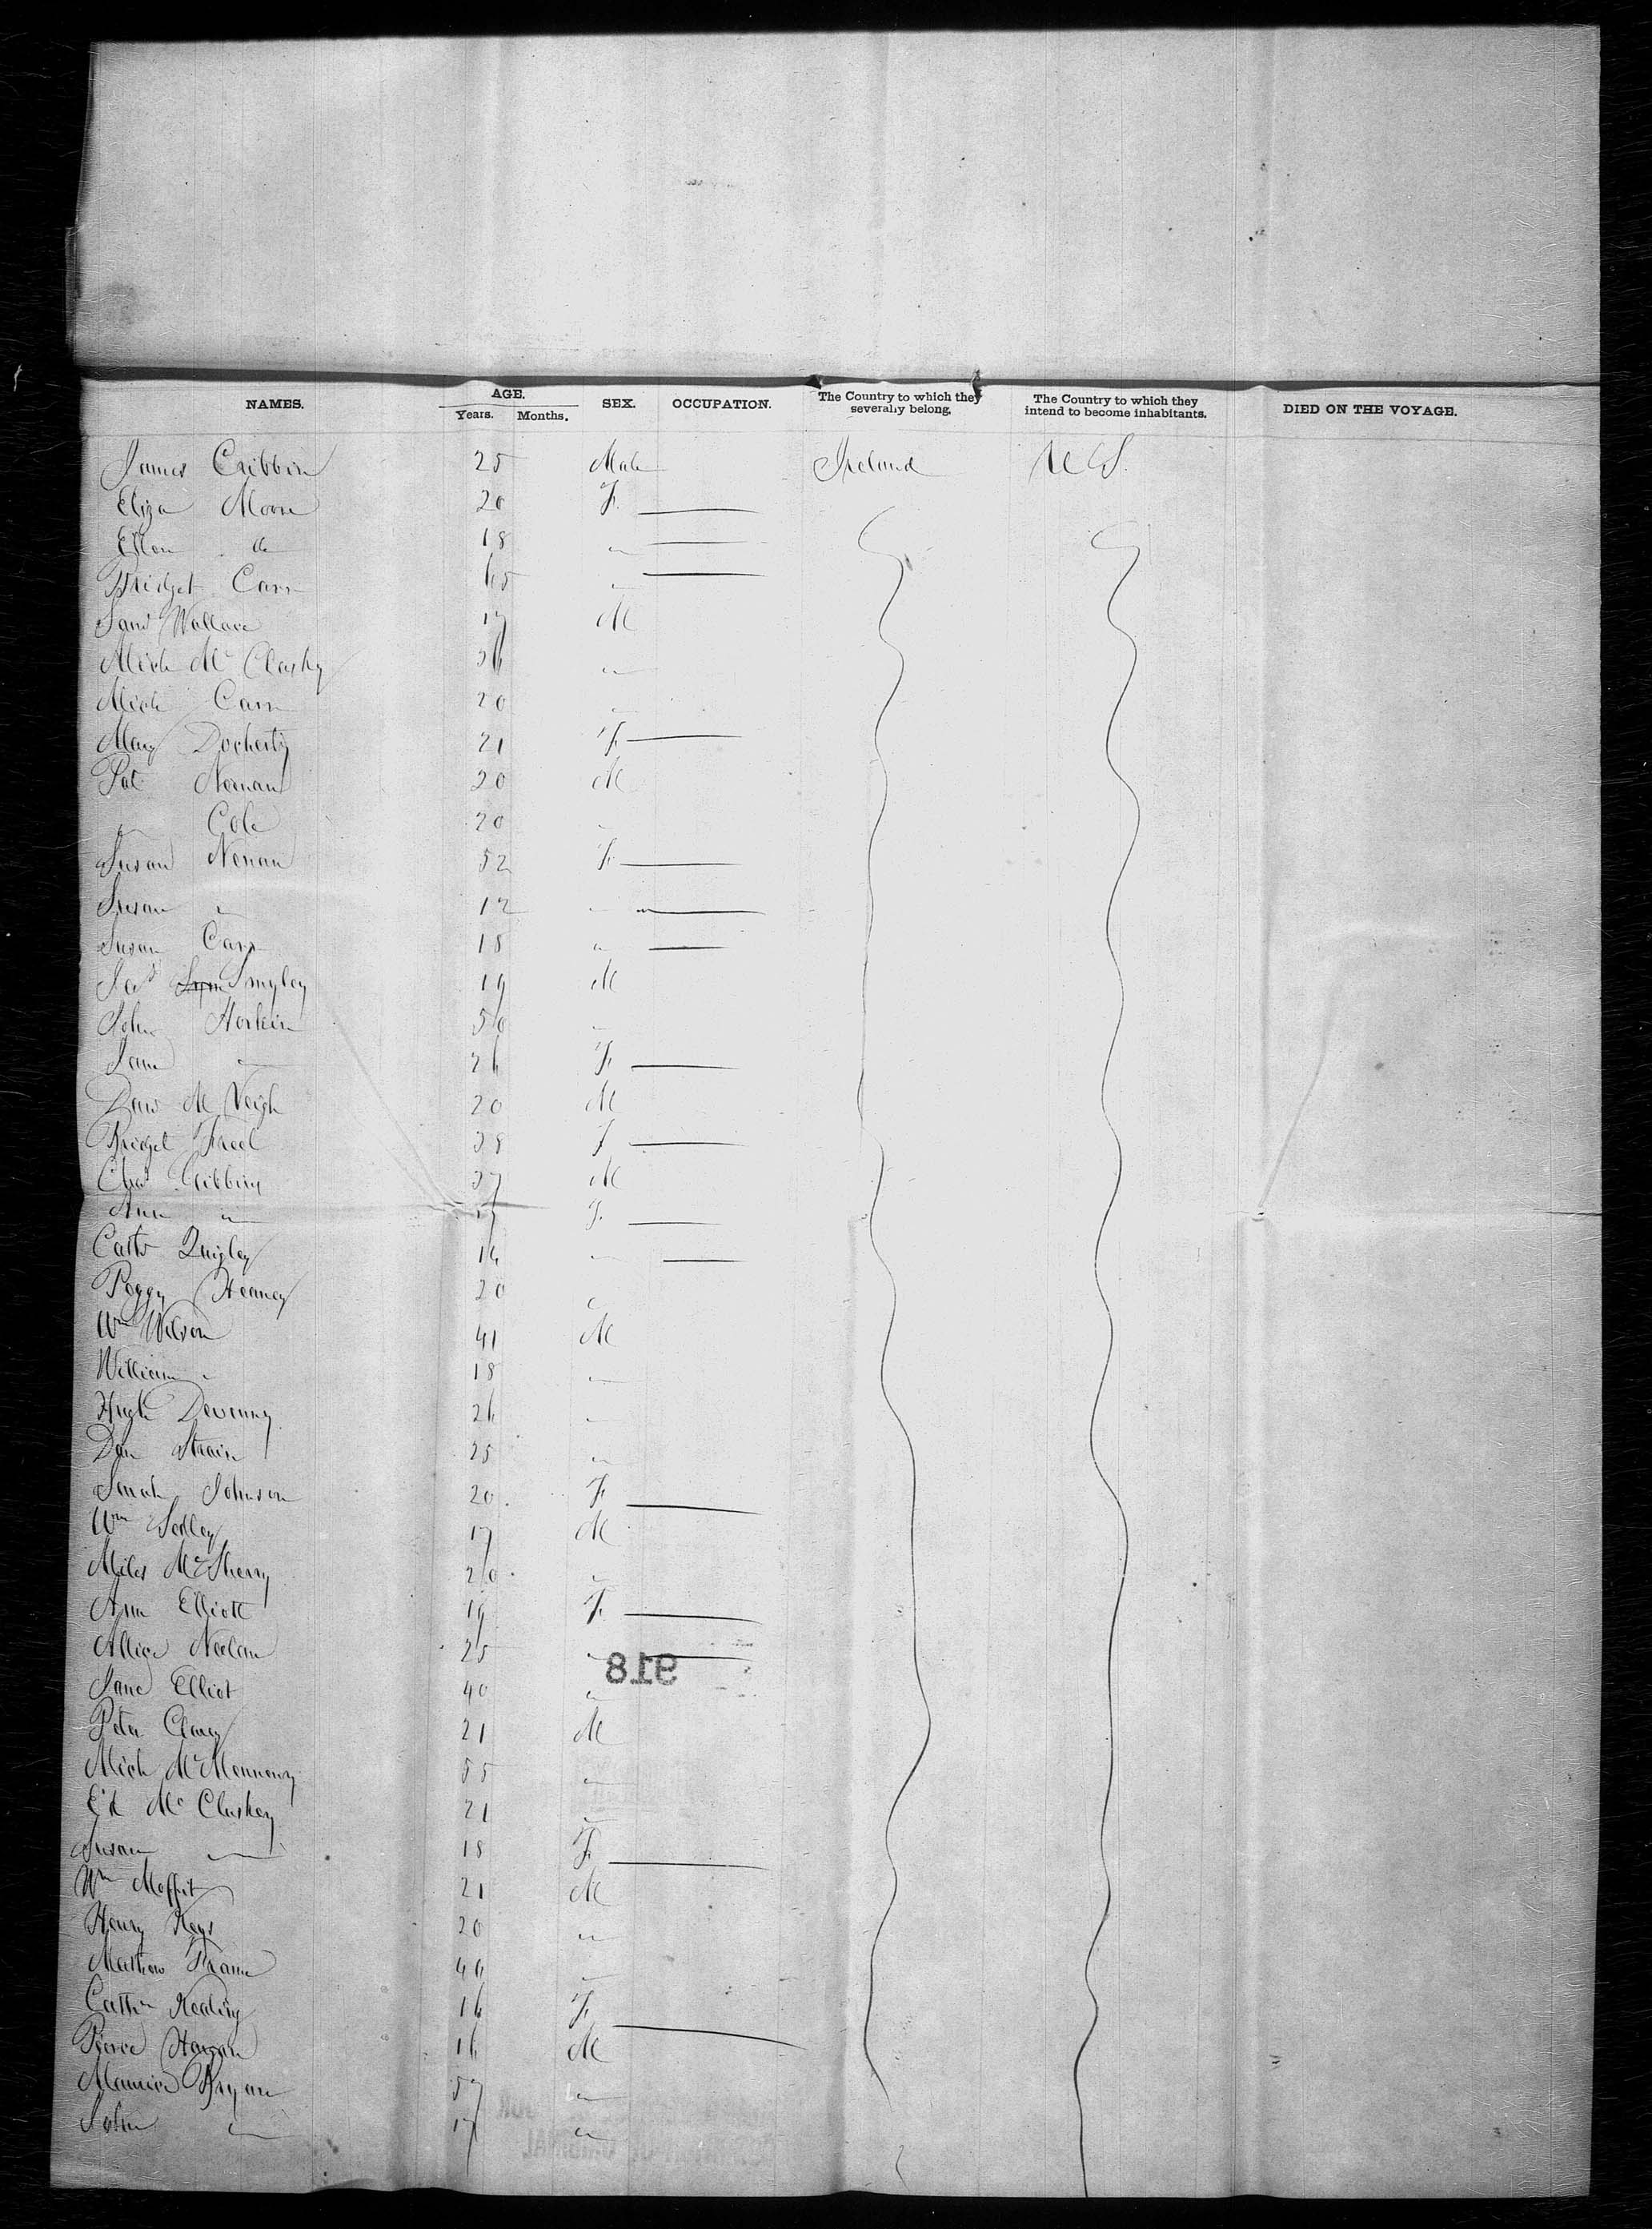 NAMES. AGE. SEX. OCCUPATION. The Country to which they severally belong. The Country to which they intend to become inhabitants. DIED ON THE VOYAGE.
Years. Months.
James Cribbin 25 Male Ireland U.S.
Eliza Moore 20 F.
Ellen do 18 "
Bridget Carr 65 "
Saml Wallace 17 M
Mich Mc Clasky 26 "
Mich Carr 20 "
Mary Docherty 21 F
Pat Nernan 20 M
" Cole 20 "
Susan Nenan 52 F
Susan " 12 "
Susan Carr 18 "
Jas Smyley 19 M
John Horkin 50 "
Jane " 26 F
Danl McVeigh 20 M
Bridget Freel 38 F
Chas Gibbins 37 M
Ann " F.
Cath Quigley 16 "
Peggy Heaney 20 "
Wm Wilson 41 M
William " 18 "
Hugh Devenny 26 "
Dan Strain 25 "
Sarah Johnson 20 F
Wm Sedley 17 M
Miles McSherry 20 "
Ann Elliott 19 F.
Allice Neelan 25 "
918
Jane Elliot 40 "
Peter Clancy 21 M
Mich Mc 55 "
Ed Mc Cluskey 21 "
Susan " 18 F
Wm Moffit 21 M
Henry Keys 20 "
Mathew 46 "
Cathn Kealing 16 F
Pierce Hagan 16 M
Maurice Bryan 57 "
John " 17 "